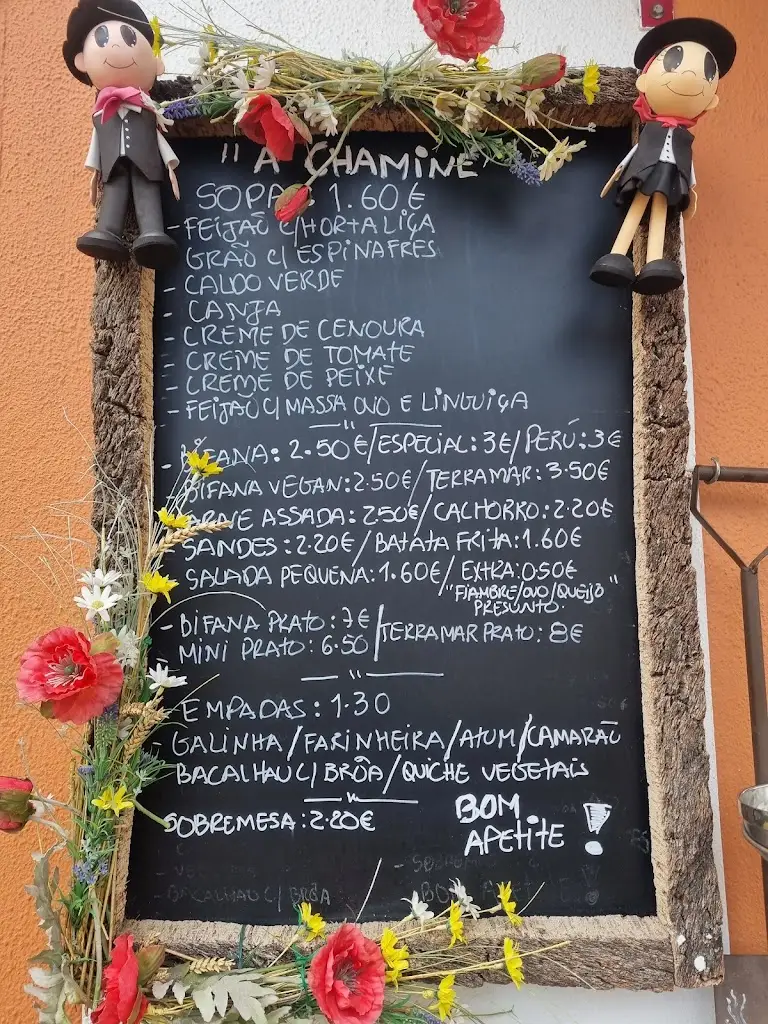 "A CHAMINÉ
SOPA: 1.60€
- FEIJÃO C/HORTALIÇA
GRÃO C/ ESPINAFRES
- CALDO VERDE
CANJA
- CREME DE CENOURA
- CREME DE TOMATE
- CREME DE PEIXE
- FEIJÃO C/ MASSA OVO E LINGUIÇA
- BIFANA: 2.50€/ESPECIAL: 3€/PERÚ: 3€
BIFANA VEGAN: 2.50€/TERRAMAR: 3.50€
CARNE ASSADA: 2.50€/CACHORRO: 2.20€
SANDES: 2.20€/BATATA FRITA: 1.60€
SALADA PEQUENA: 1.60€/EXTRA: 0.50€
"FIAMBRE/OVO/QUEIJO"
PRESUNTO.
- BIFANA PRATO: 7€/TERRAMAR PRATO: 8€
MINI PRATO: 6.50
EMPADAS: 1.30
- GALINHA/FARINHEIRA/ATUM/CAMARÃO
BACALHAU C/ BRÔA/QUICHE VEGETAIS
SOBREMESA: 2.20€
BOM
APETITE!
BACALHAU C/ BRÔA